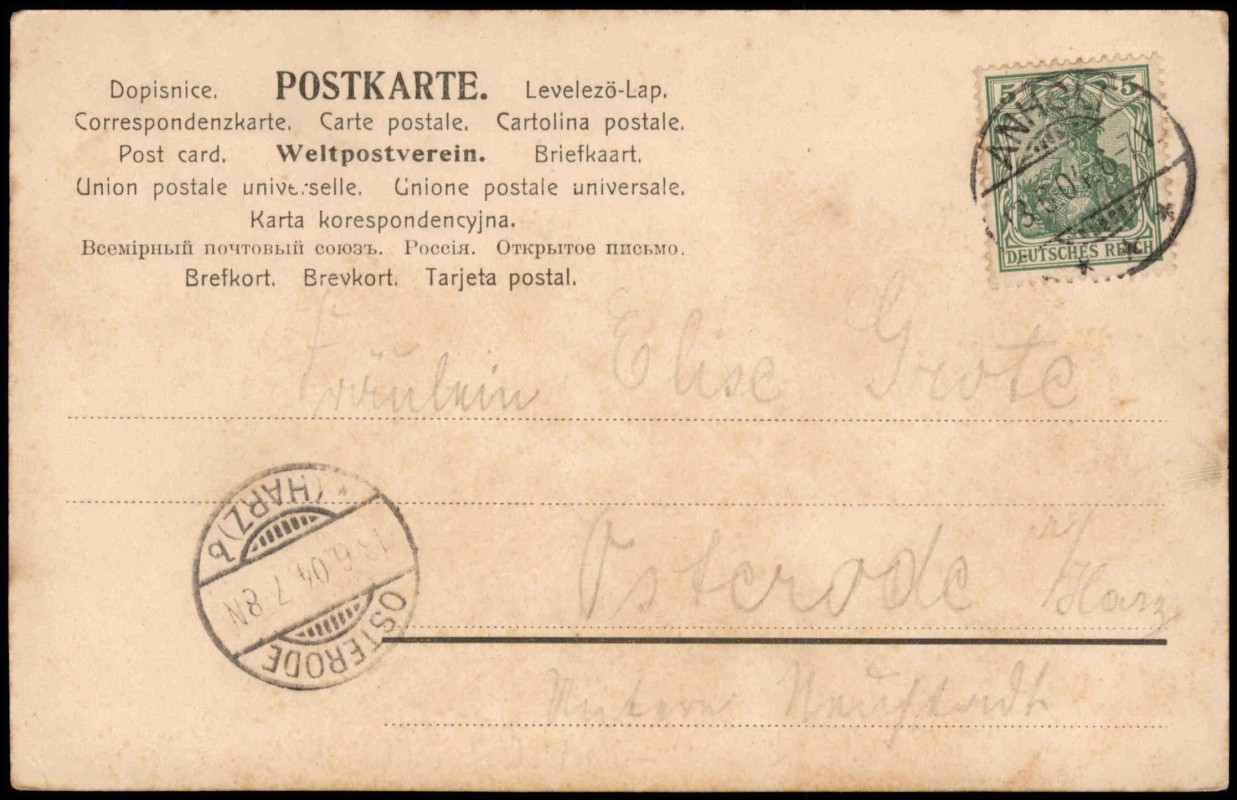 Dopisnice. POSTKARTE. Levelező-Lap.
Correspondenzkarte. Carte postale. Cartolina postale.
Post card. Weltpostverein. Briefkaart.
Union postale universelle. Unione postale universale.
Karta korespondencyjna.
Всемірный почтовый союзъ. Россія. Открытое письмо.
Brefkort. Brevkort. Tarjeta postal.
5 5
DEUTSCHES REICH
13.6.04.
Fräulein Elise Grote
Osterode a/Harz
Untere Neustadt
OSTERODE
(HARZ) b
13.6.04. 7-8N